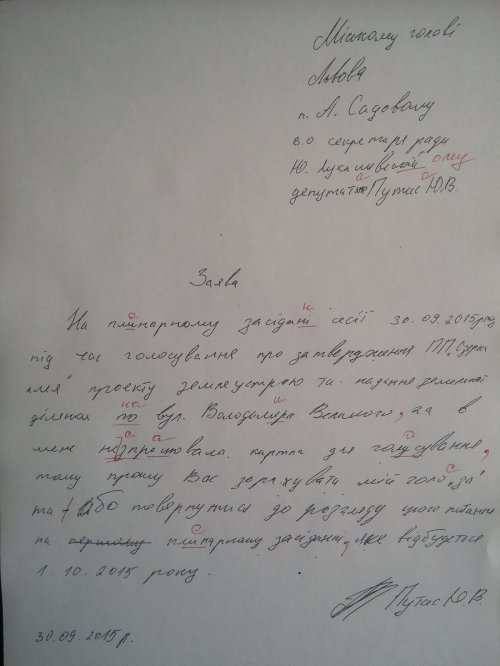 Міському голові
Львова
п. А. Садовому
в.о секретаря ради
Ю. Лукашевській ому
депутата Путас Ю.В.
Заява
На плинарному засідані сесії 30.09.2015 року
під час голосування про затвердження ПП
проекту землеустрою та надання земельної
ділянки по на вул. Володимера и Великого, а в
мене не зпрацювала картка для голусування,
тому прошу Вас зарахувати мій голос „за"
та / або повернутися до розгляду цього питання
на першому плинарному засіданні, яке відбудеться
1.10.2015 року.
Путас Ю.В.
30.09.2015р.